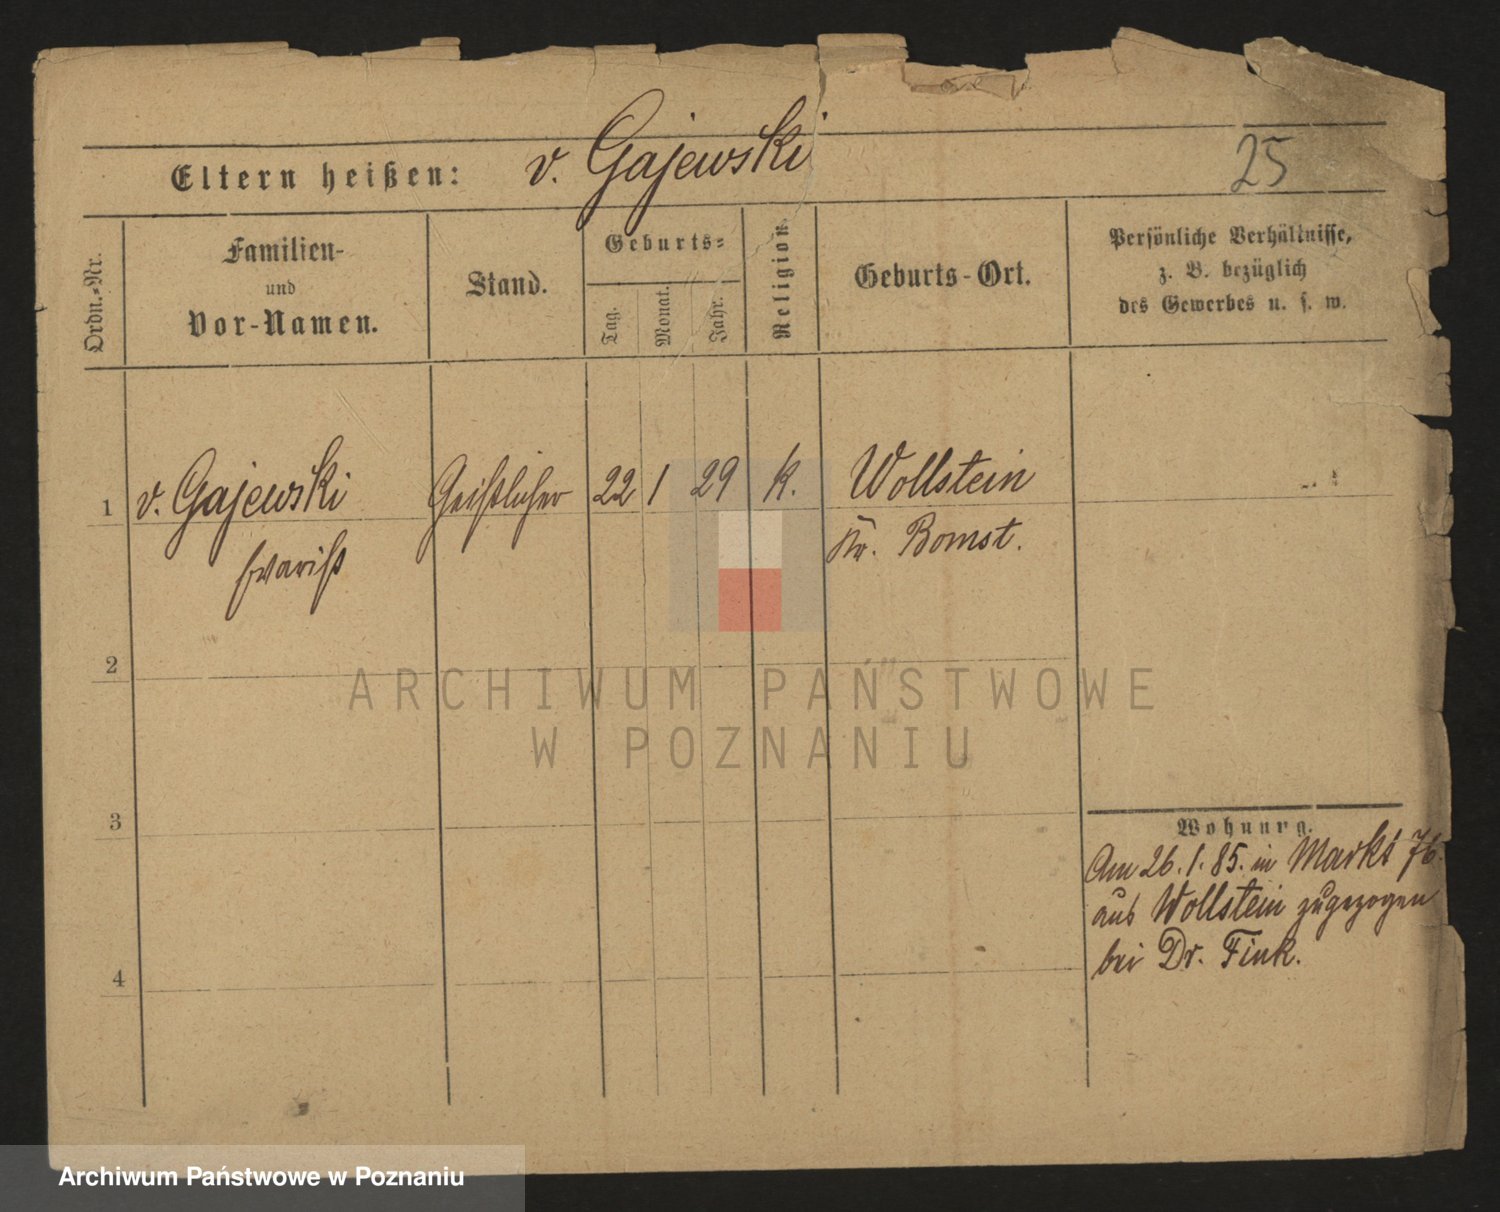 v. Gajewski
25
Eltern heißen:
Ordn.-Nr.
Familien-
und
Vor-Namen.
Stand.
Geburts-
Tag.
Monat.
Jahr.
Religion
Geburts-Ort.
Persönliche Verhältnisse,
z. B. bezüglich
des Gewerbes u. s. w.
1 v. Gajewski Geistlicher 22 1 29 k. Wollstein
Evarist Kr. Bomst.
2
ARCHIWUM PAŃSTWOWE
W POZNANIU
3
Wohnung.
Am 26.1.85. in Markt 76.
aus Wollstein zugezogen
bei Dr. Fink.
4
Archiwum Państwowe w Poznaniu